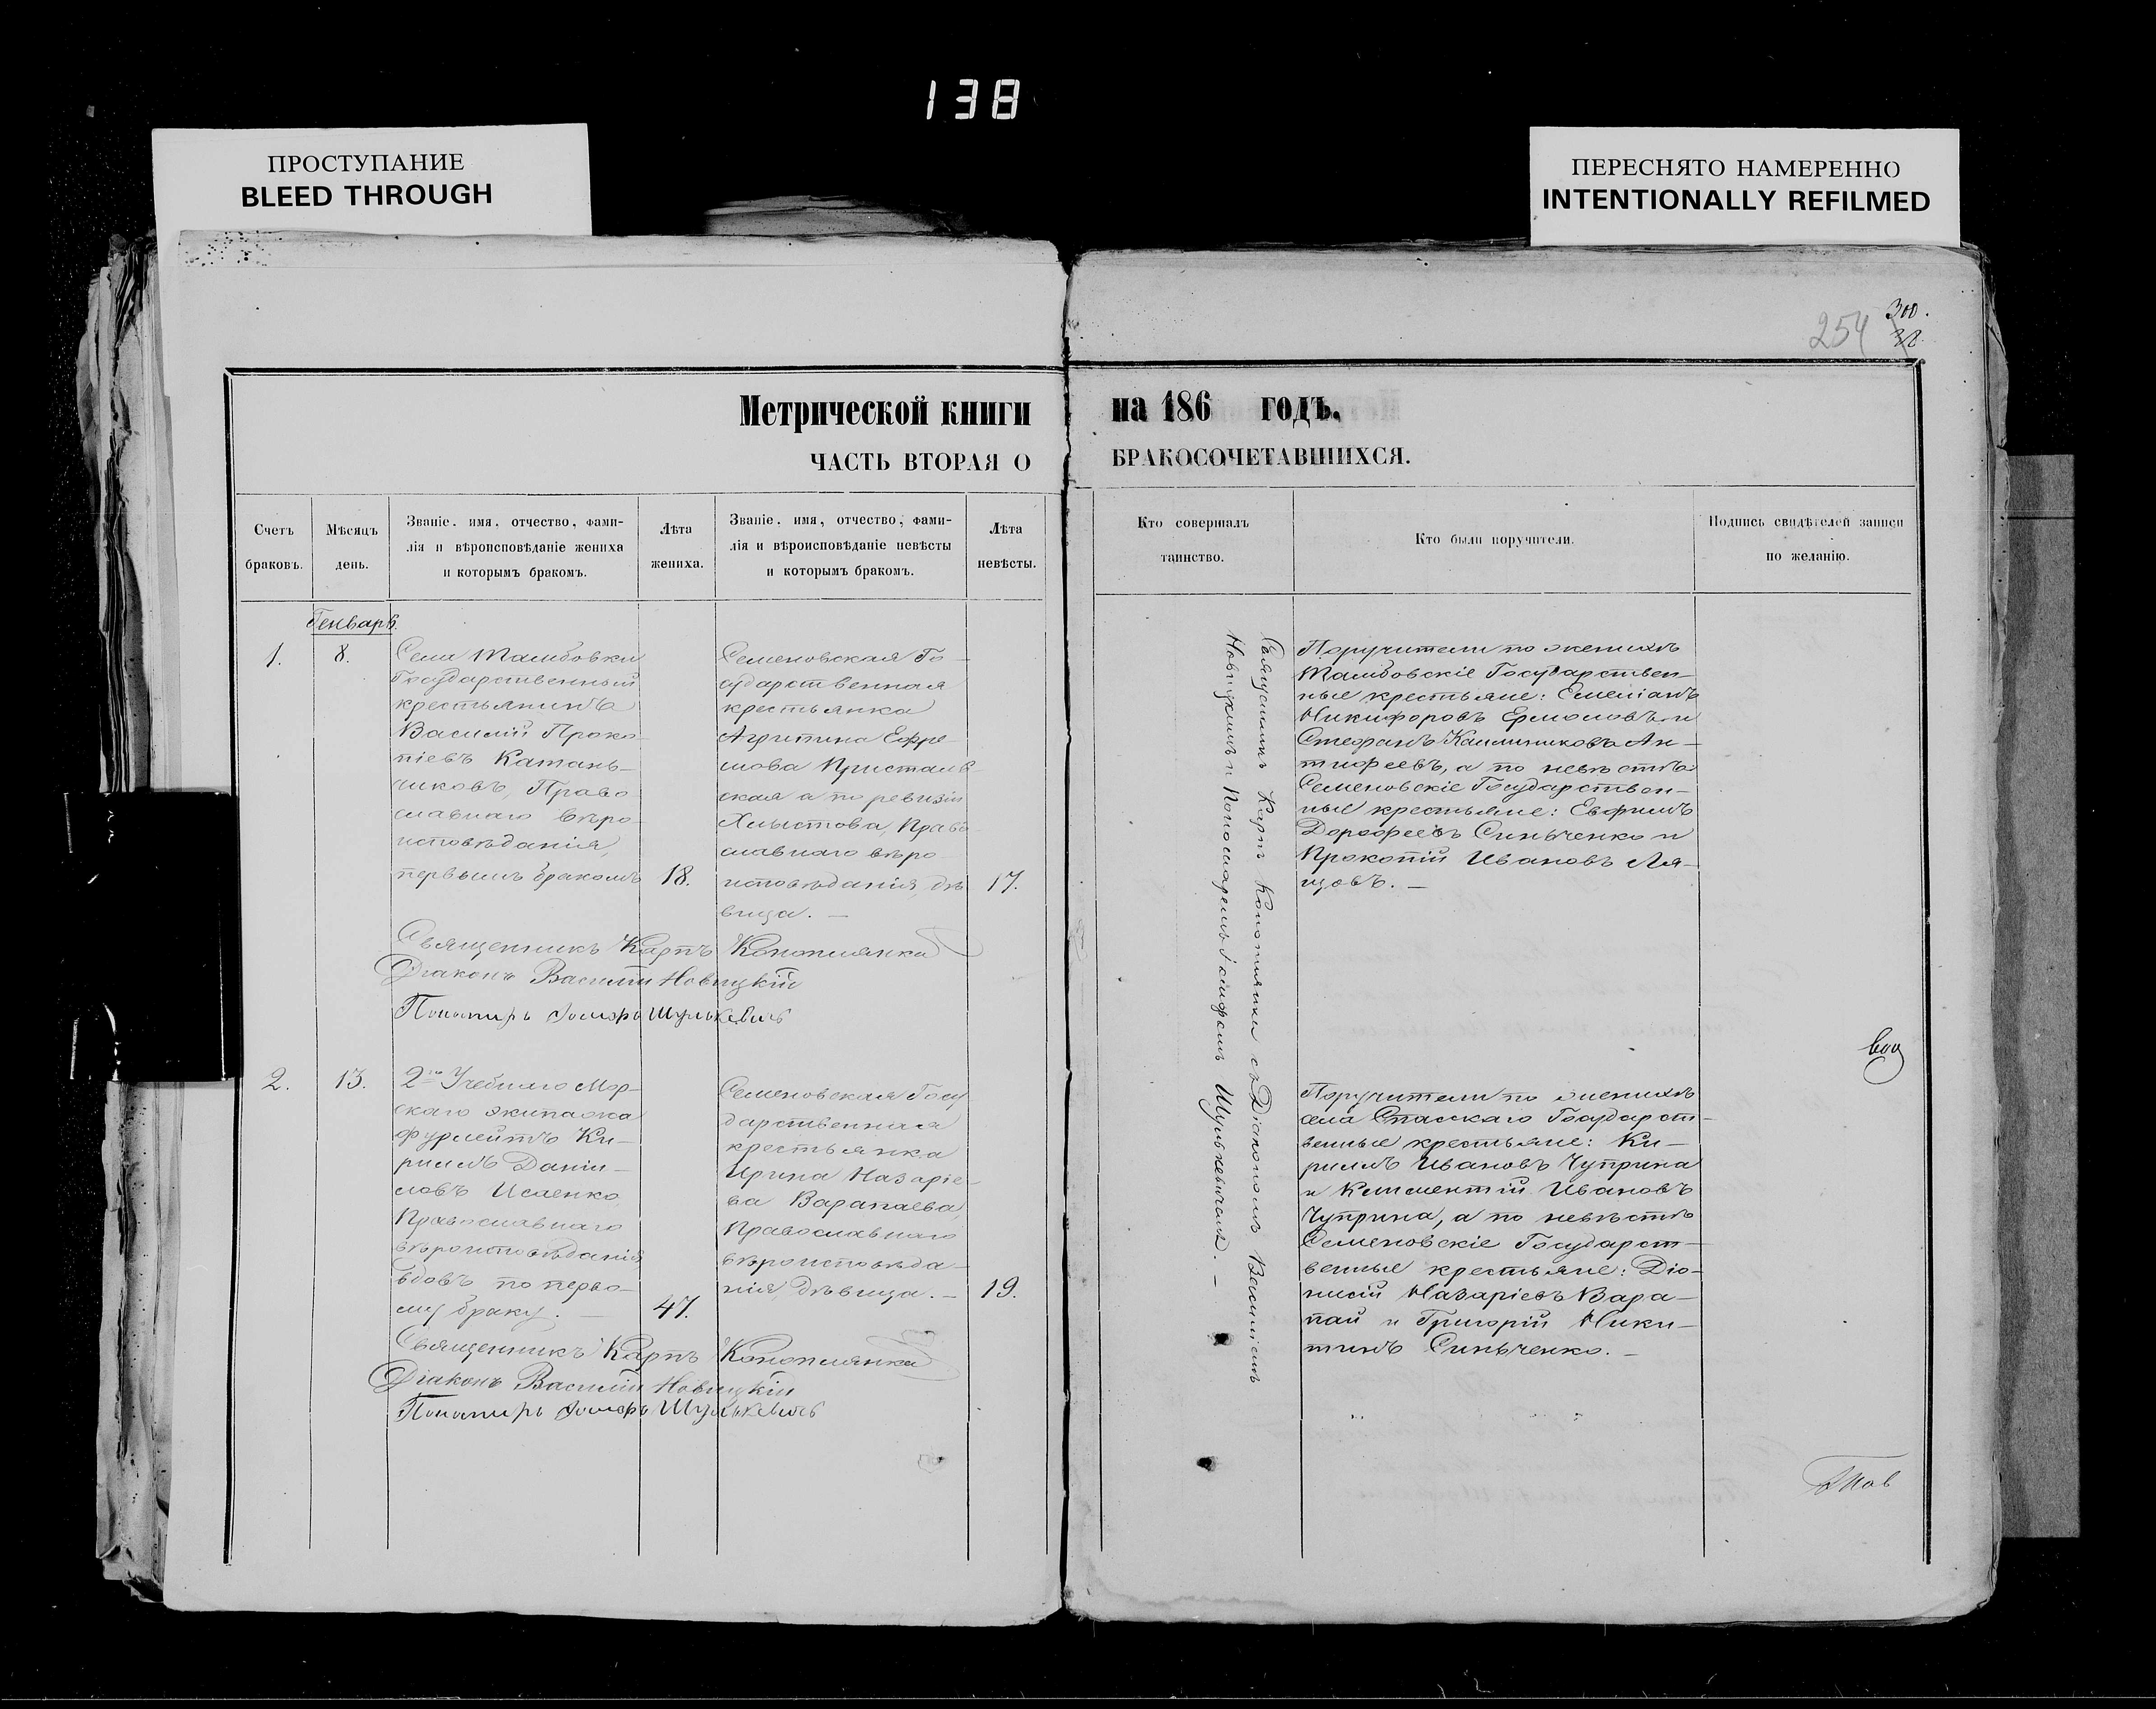 138
ПРОСТУПАНИЕ
BLEED THROUGH
ПЕРЕСНЯТО НАМЕРЕННО
INTENTIONALLY REFILMED
300.
254
Метрической книги на 186 годъ.
ЧАСТЬ ВТОРАЯ О БРАКОСОЧЕТАВШИХСЯ.
Счетъ
браковъ.
Мѣсяцъ
день.
Званіе, имя, отчество, фами-
лія и вѣроисповѣданіе жениха
и которымъ бракомъ.
Лѣта
жениха.
Званіе, имя, отчество, фами-
лія и вѣроисповѣданіе невѣсты
и которымъ бракомъ.
Лѣта
невѣсты.
Кто совершалъ
таинство.
Кто были поручители.
Подпись свидѣтелей записи
по желанію.
Генварь.
1.
8.
Села Тамбовки
Государственный
крестьянинъ
Василій Проко-
піевъ Катань-
чиковъ, Право-
славнаго вѣро-
исповѣданія,
первымъ бракомъ
18.
Семеновская Го-
сударственная
крестьянка
Агрипина Ефре-
мова Пристанв
ская а по ревизіи
Хлыстова, Право-
славнаго вѣро
исповѣданія, дѣ
вица. —
17.
Священникъ Карпъ Конопляика съ Діакономъ Василіемъ
Новицкимъ и Пономаремъ Іосифомъ Шулькевичемъ. —
Поручители по женихѣ
Тамбовскіе Государствен-
ные крестьяне: Емеліанъ
Никифоровъ Ермоловъ и
Стефанъ Калиниковъ Ан-
тифеевъ, а по невѣстѣ
Семеновскіе Государствен-
ные крестьяне: Евфимъ
Дорофеевъ Синьченко и
Прокопій Ивановъ Ля-
щовъ. —
Священникъ Карпъ Конопляика
Діаконъ Василій Новицкій
Пономарь Іосифъ Шулькевичъ
2.
13.
2го Учебнаго Мор-
скаго экипажа
фурлейтъ Ки-
риллъ Даніи-
ловъ Исаенко,
Православнаго
вѣроисповѣданія
вдовъ по перво-
му браку. —
47.
Семеновская Госу
дарственная
крестьянка
Ирина Назаріе-
ва Варапаева,
Православнаго
вѣроисповѣда-
нія дѣвица. —
19.
Поручители по женихѣ
села Спасскаго Государст-
венные крестьяне: Ки-
риллъ Ивановъ Чуприна
и Климентій Ивановъ
Чуприна, а по невѣстѣ
Семеновскіе Государст-
венные крестьяне: Діо-
нисій Назаріевъ Вара-
пай и Григорій Ники-
тинъ Синьченко. —
Священникъ Карпъ Конопляика
Діаконъ Василій Новицкій
Пономарь Іосифъ Шулькевичъ